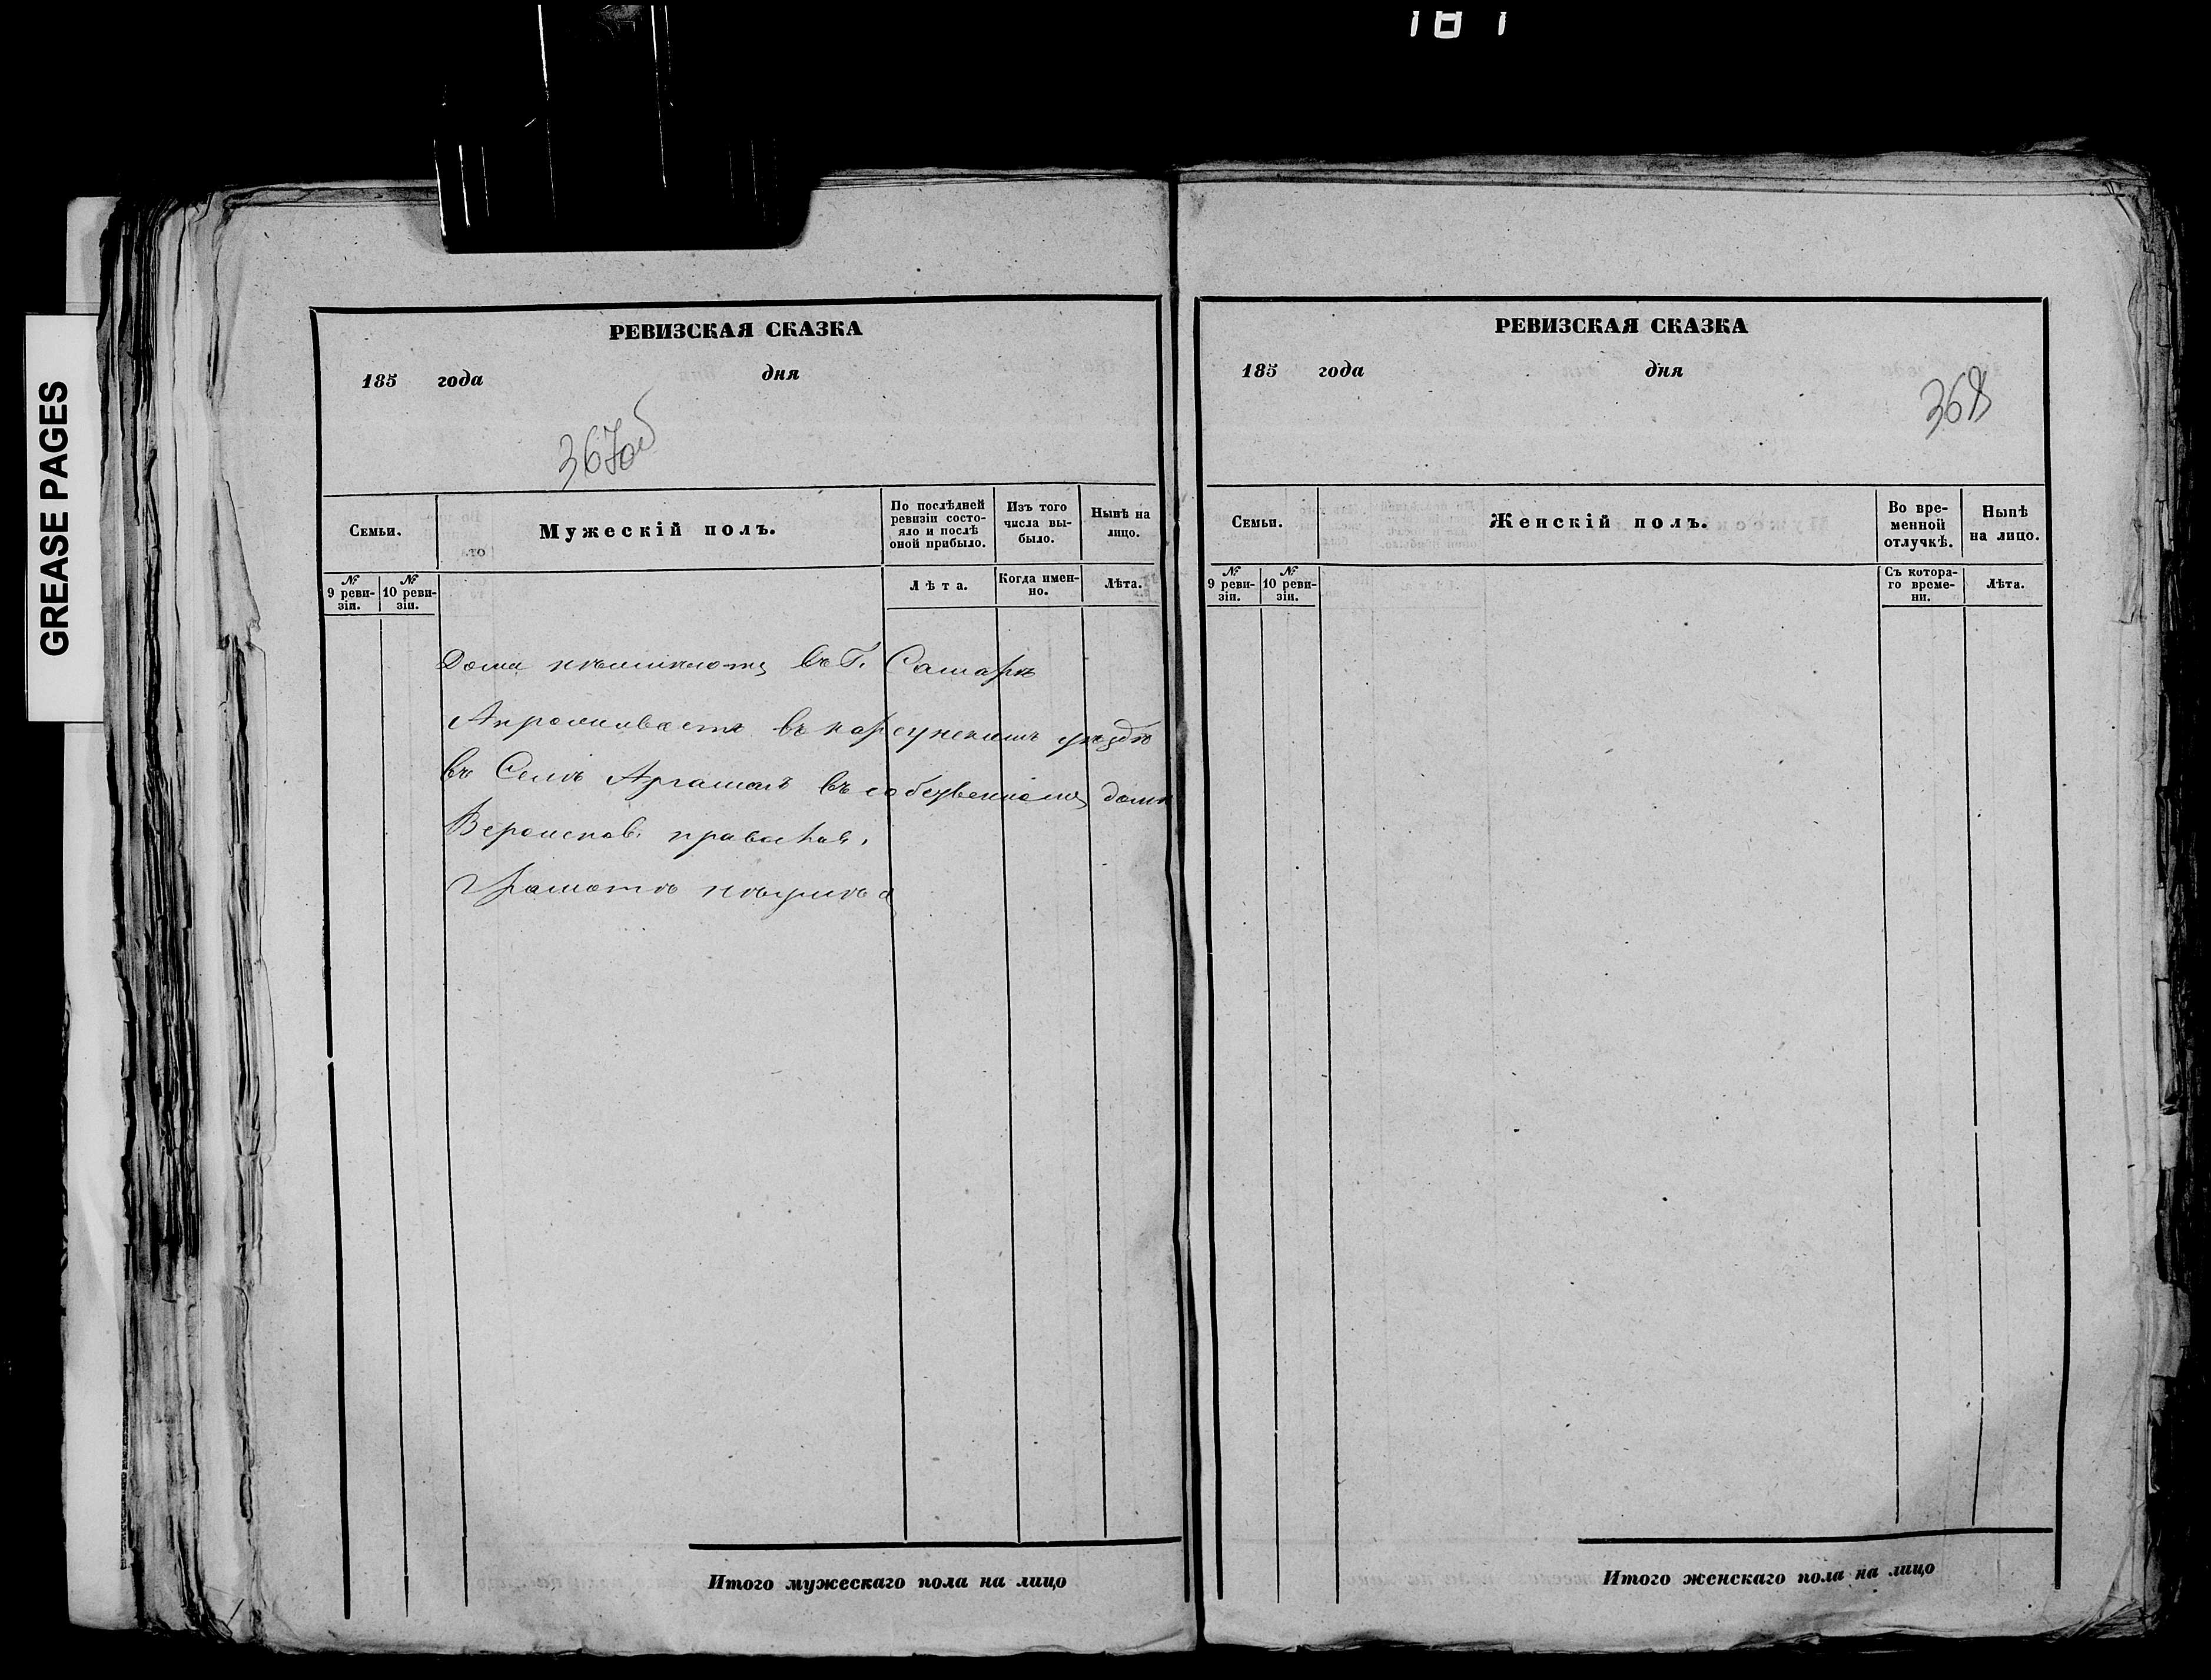 181
GREASE PAGES
РЕВИЗСКАЯ СКАЗКА
185 года дня
367об
Семьи.
Мужескій полъ.
По послѣдней ревизіи состо-
яло и послѣ оной прибыло.
Изъ того числа вы-
было.
Нынѣ на лицо.
№ 9 реви-
зіи.
№ 10 реви-
зіи.
Лѣта.
Когда имен-
но.
Лѣта.
Дома
въ Г. Самарѣ
Апроживаетъ въ карсунскомъ уѣздѣ
въ Селѣ Аргашѣ въ собственномъ домѣ
Вероиспов. православ.
Грамотѣ
РЕВИЗСКАЯ СКАЗКА
185 года дня
368
Семьи.
Женскій полъ.
Во вре-
менной отлучкѣ.
Нынѣ на лицо.
№ 9 реви-
зіи.
№ 10 реви-
зіи.
Съ котора-
го време-
ни.
Лѣта.
Итого мужескаго пола на лицо
Итого женскаго пола на лицо